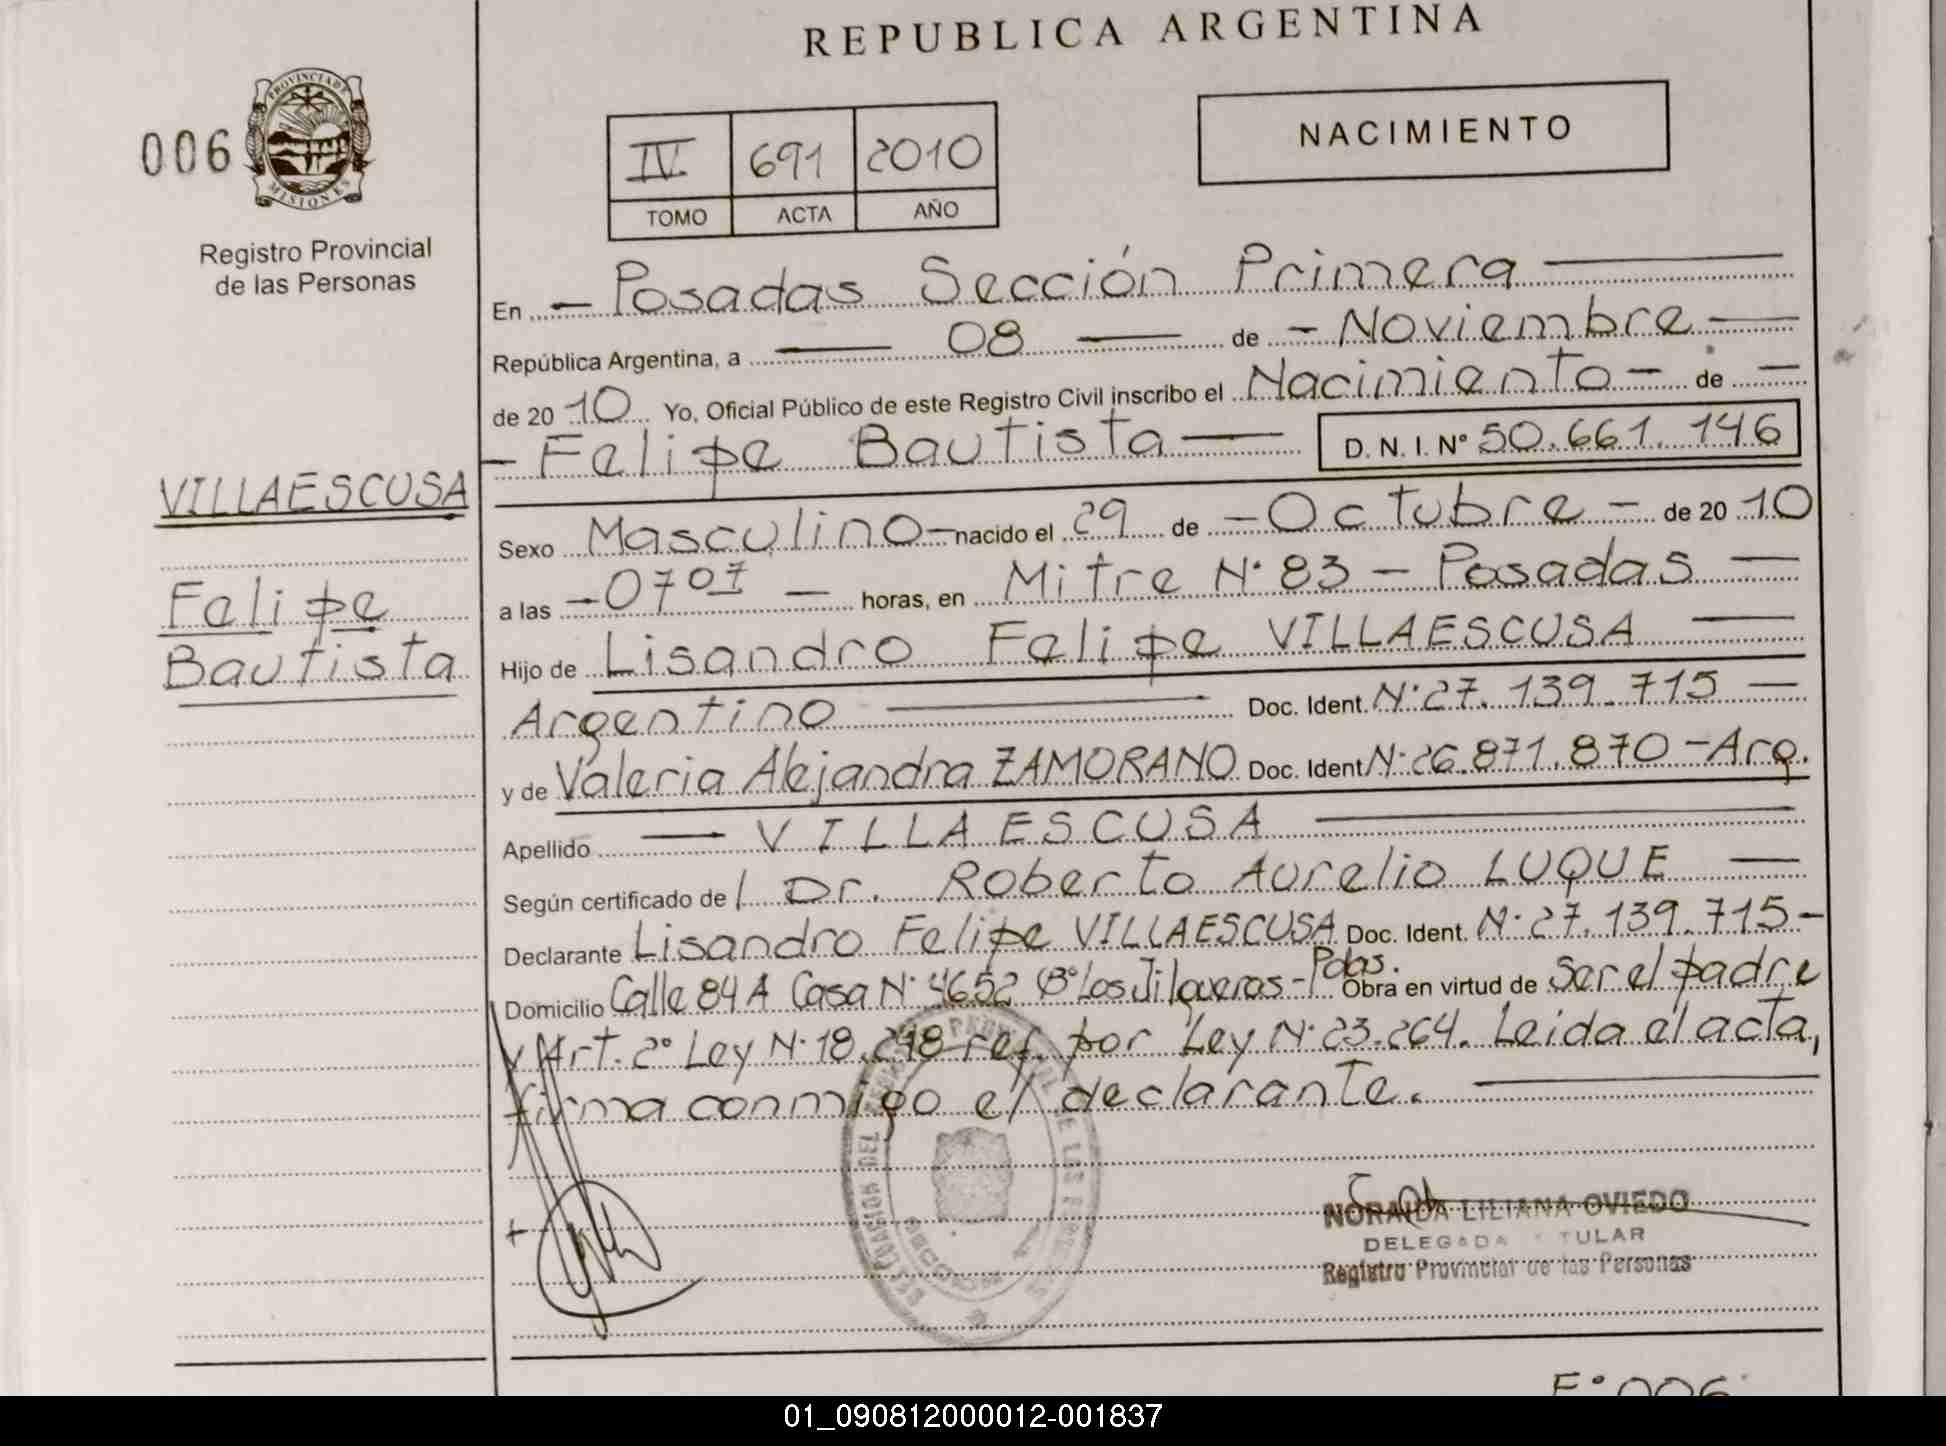 REPUBLICA ARGENTINA
006
PROVINCIA DE
MISIONES
Registro Provincial
de las Personas
IV 691 2010
TOMO ACTA AÑO
NACIMIENTO
En - Posadas Sección Primera
República Argentina, a 08 de - Noviembre
de 20 10 Yo, Oficial Público de este Registro Civil inscribo el Nacimiento - de -
- Felipe Bautista D. N. I. Nº 50.661.146
VILLAESCUSA
Felipe
Bautista
Sexo Masculino - nacido el 29 de - Octubre - de 20 10
a las - 0707 - horas, en Mitre Nº 83 - Posadas
Hijo de Lisandro Felipe VILLAESCUSA
Argentino Doc. Ident. Nº 27.139.715 -
y de Valeria Alejandra ZAMORANO Doc. Ident Nº 26.871.870 - Arg.
Apellido VILLAESCUSA
Según certificado del Dr. Roberto Aurelio LUQUE
Declarante Lisandro Felipe VILLAESCUSA Doc. Ident. Nº 27.139.715 -
Domicilio Calle 84 A Casa Nº 4652 Bº Los Jilgueros - Pdas. Obra en virtud de Ser el padre
y Art. 2º Ley Nº 18.248 ref. por Ley Nº 23.264. Leida el acta,
firma conmigo el declarante.
NORAIDA LILIANA OVIEDO
DELEGADA TITULAR
Registro Provincial de las Personas
Fº 006
01_090812000012-001837